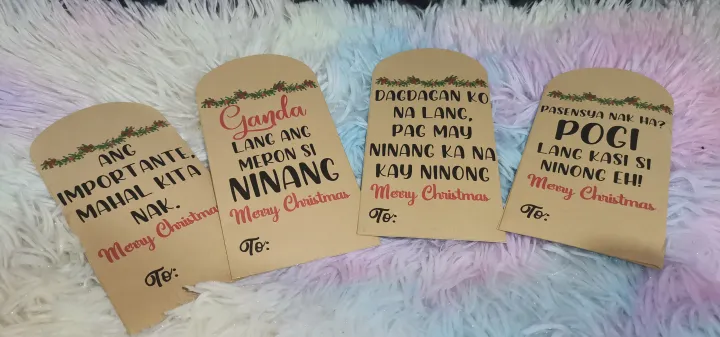 ANG
IMPORTANTE,
MAHAL KITA
NAK.
Merry Christmas
To:
Ganda
LANG ANG
MERON SI
NINANG
Merry Christmas
To:
DAGDAGAN KO
NA LANG,
PAG MAY
NINANG KA NA
KAY NINONG
Merry Christmas
To:
PASENSYA NAK HA?
POGI
LANG KASI SI
NINONG EH!
Merry Christmas
To: